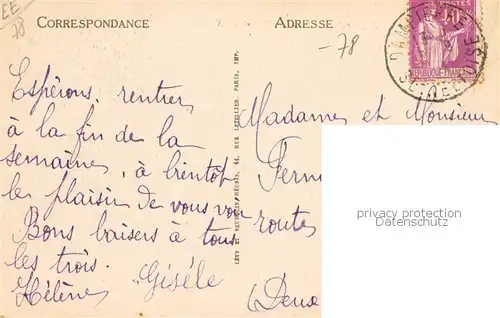 EE
78
CORRESPONDANCE
ADRESSE
-78
POSTES
DAMPIERRE
SNE-ET-OISE
Espérons rentrer
à la fin de la
semaine, à bientôt
le plaisir de vous voir
Bons baisers à tous
les trois.
Gisèle
Hélène
LÉVY ET NEURDEIN RÉUNIS, 44, RUE LETELLIER, PARIS, IMP.
Madame et Monsieur
Ferm
route
(Deux
privacy protection
Datenschutz